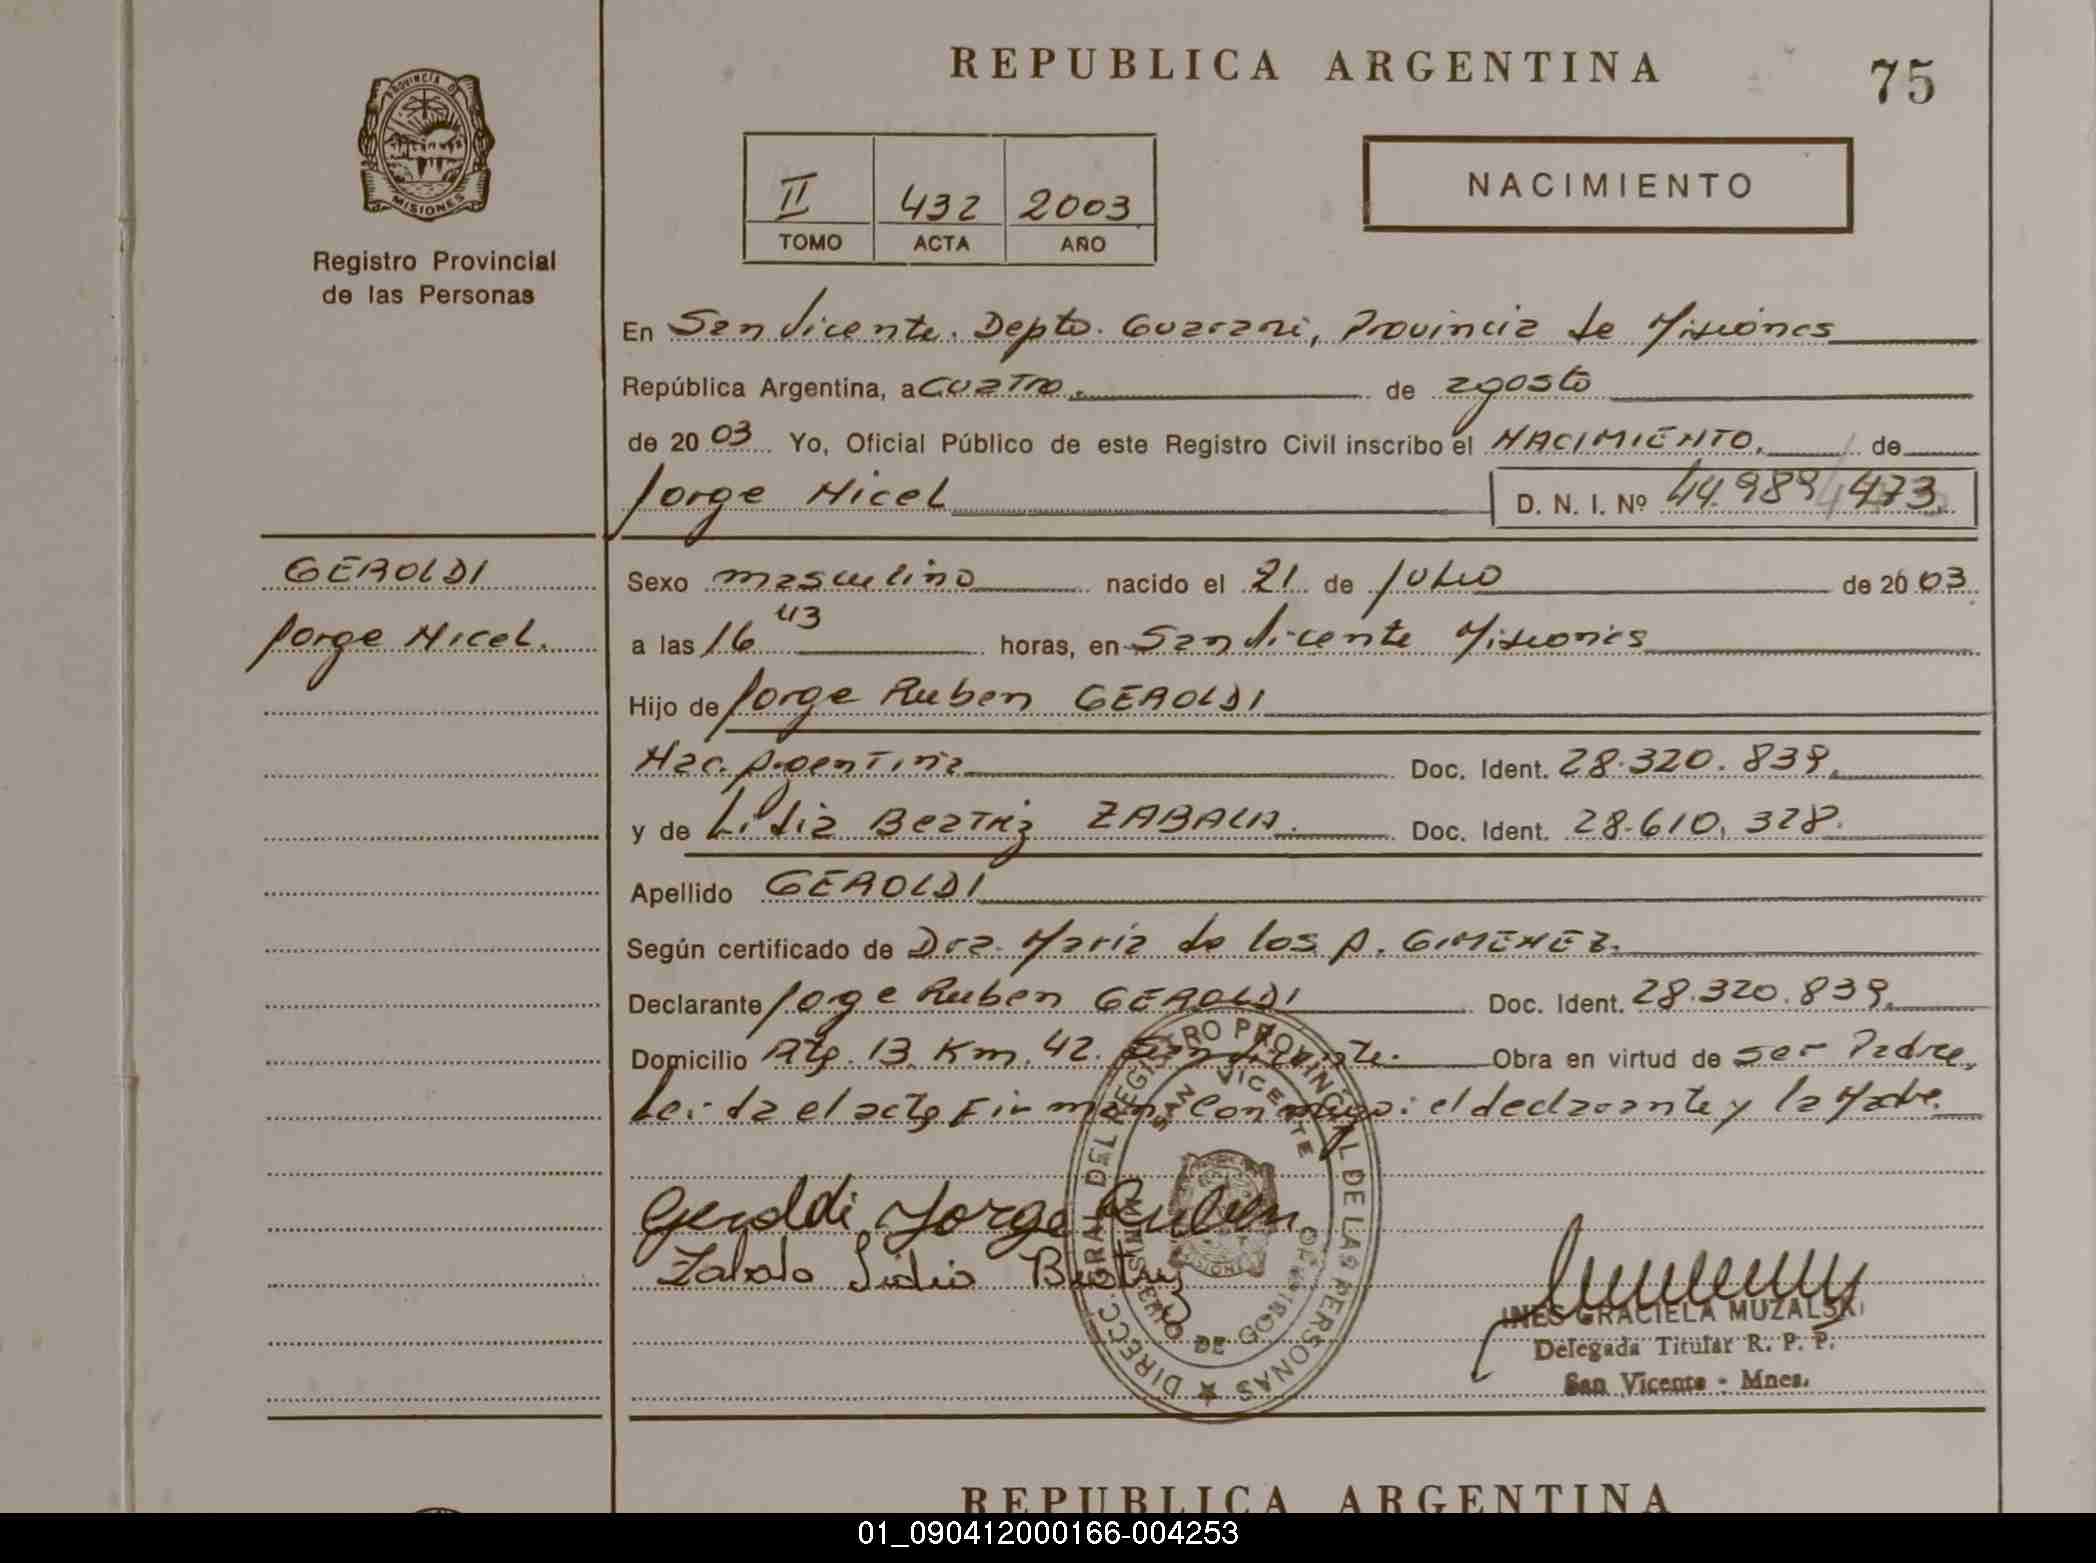 REPUBLICA ARGENTINA
75
PROVINCIA DE
MISIONES
Registro Provincial
de las Personas
II 432 2003
TOMO ACTA AÑO
NACIMIENTO
En San Vicente. Depto. Guarani, Provincia de Misiones
República Argentina, a cuatro. de agosto
de 20 03 Yo, Oficial Público de este Registro Civil inscribo el NACIMIENTO, de
Jorge Nicel D. N. I. Nº 44.989 473.
GEROLDI
Jorge Nicel.
Sexo masculino nacido el 21 de Julio de 20 03
a las 16 43 horas, en San Vicente Misiones
Hijo de Jorge Ruben GEROLDI
Nac. Argentina Doc. Ident. 28.320.839.
y de Lidia Beatriz ZABALA. Doc. Ident. 28.610.328.
Apellido GEROLDI
Según certificado de Dra. María de los A. GIMENEZ.
Declarante Jorge Ruben GEROLDI Doc. Ident. 28.320.839.
Domicilio Rta. 13. Km. 42. San Vicente. Obra en virtud de ser Padre.
Leida el acta Firman Conmigo: el declarante y la Madre.
Geroldi Jorge Ruben
Zabala Lidia Beatriz
DIRECC. GRAL. DEL REGISTRO PROVINCIAL DE LAS PERSONAS
SAN VICENTE
DE GOBIERNO
INES GRACIELA MUZALSKI
Delegada Titular R. P. P.
San Vicente - Mnes.
REPUBLICA ARGENTINA
01_090412000166-004253